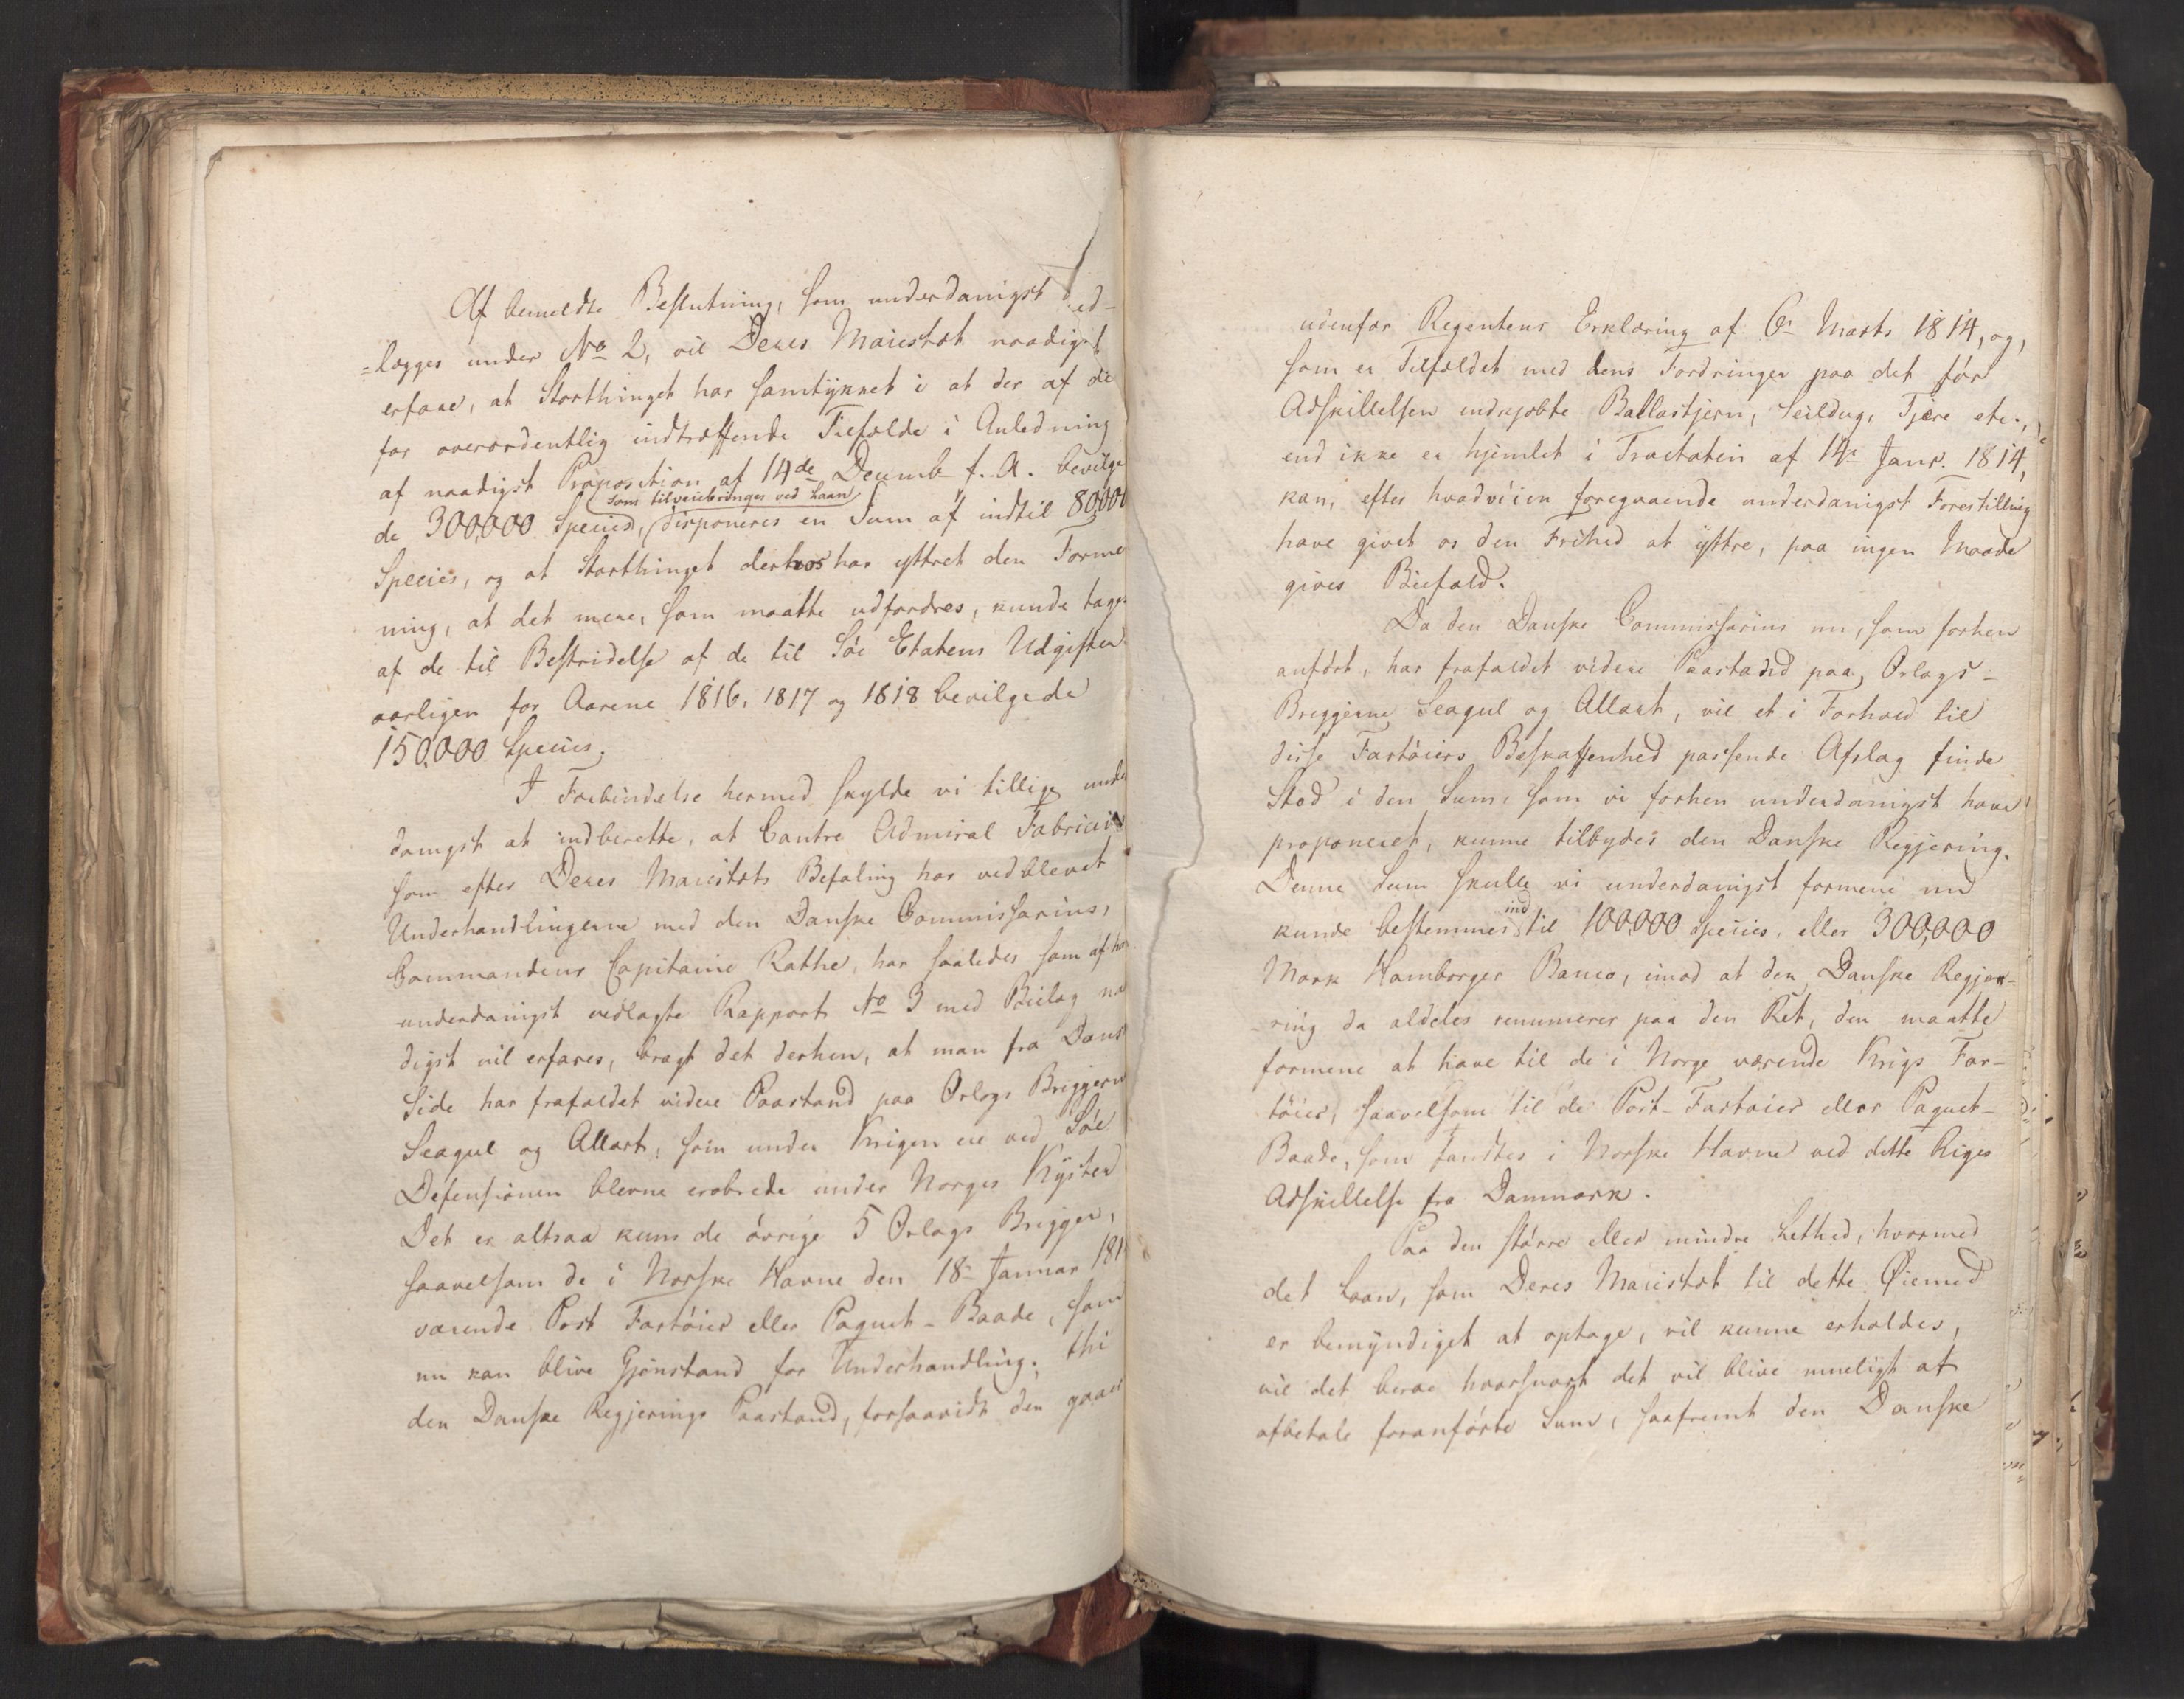 Af bemeldte Beslutning, som underdanigst ved-
=lægges under No 2, vil Deres Maiestæt naadigst
erfare, at Storthinget har samtykket i at der af de
for overordentlig indtræffende Tilfælde i Anledning
af naadigst Proposition af 14de Decemb. f. A. bevilge
som tilveiebringes ved Laan
de 300,000 Species, disponeres en Sum af indtil 80,000
Species, og at Storthinget derhos har yttret den Forme
ning, at det mere, som maatte udfordres, kunde tages
af de til Bestridelse af de til Søe Etatens Udgifter
aarligen for Aarene 1816, 1817 og 1818 bevilgede
150,000 Species.
I Forbindelse hermed skylde vi tillige under
danigst at indberette, at Contre Admiral Fabricius
som efter Deres Maiestæts Befaling har vedblevet
Underhandlingerne med den Danske Commissarius,
Commandeur Capitaine Rothe, har saaledes som af hans
underdanigst vedlagte Rapport No 3 med Bielag naa
digst vil erfares, bragt det derhen, at man fra Dansk
Side har frafaldet videre Paastand paa Orlogs Briggerne
Seagul og Allart, som under Krigen ere ved Søe
Defensionen blevne erobrede under Norges Kyster
Det er altsaa kuns de øvrige 5 Orlogs Brigger,
saavelsom de i Norske Havne den 18de Januar 181
værende Post Fartøier eller Paquet-Baade, som
nu kan blive Gjenstand for Underhandling; thi
den Danske Regjerings Paastand, forsaavidt den gaaer
udenfor Regentens Erklæring af 6te Marts 1814, og,
som er Tilfældet med dens Fordringer paa det før
Adskillelsen indkjøbte Ballastjern, Seildug, Tjære etc.,
end ikke er hjemlet i Tractaten af 14de Janr. 1814,
kan, efter hvad vi i en foregaaende underdanigst Forestilling
have givet os den Frihed at yttre, paa ingen Maade
gives Biefald.
Da den Danske Commissarius nu, som forhen
anført, har frafaldet videre Paastand paa Orlogs-
Briggerne Seagul og Allart, vil et i Forhold til
disse Fartøiers Beskaffenhed passende Afslag finde
Sted i den Sum, som vi forhen underdanigst have
proponeret, kunne tilbydes den Danske Regjering.
Denne Sum skulle vi underdanigst formene nu
ind
kunde bestemmes til 100,000 Species, eller 300,000
Mark Hamborger Banco, imod at den Danske Regje-
ring da aldeles renuncerer paa den Ret, den maatte
formene at have til de i Norge værende Krigs Far-
tøier, saavelsom til de Post-Fartøier eller Paquet-
Baade, som fandtes i Norske Havne ved dette Riges
Adskillelse fra Danmark.
Paa den større eller mindre Lethed, hvormed
det Laan, som Deres Maiestæt til dette Øiemed
er bemyndiget at optage, vil kunne erholdes,
vil det beroe hvorsnart det vil blive mueligt at
afbetale foranførte Sum, saafremt den Danske